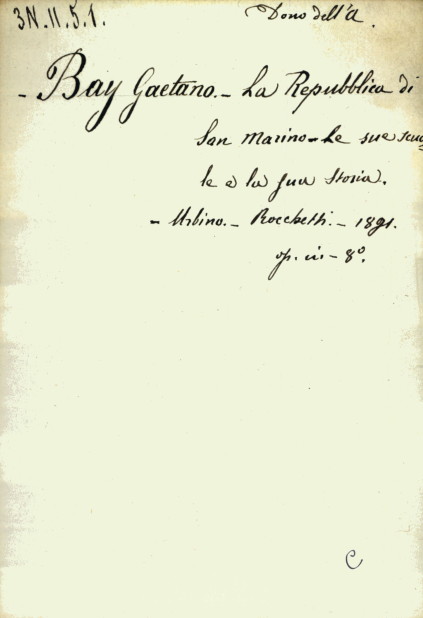 3N.11.5.1.
Dono dell'A.
- Bay Gaetano. - La Repubblica di
San Marino - Le sue scuo
le e la sua Storia.
- Urbino. - Rocchetti. - 1891.
op. in - 8º.
C